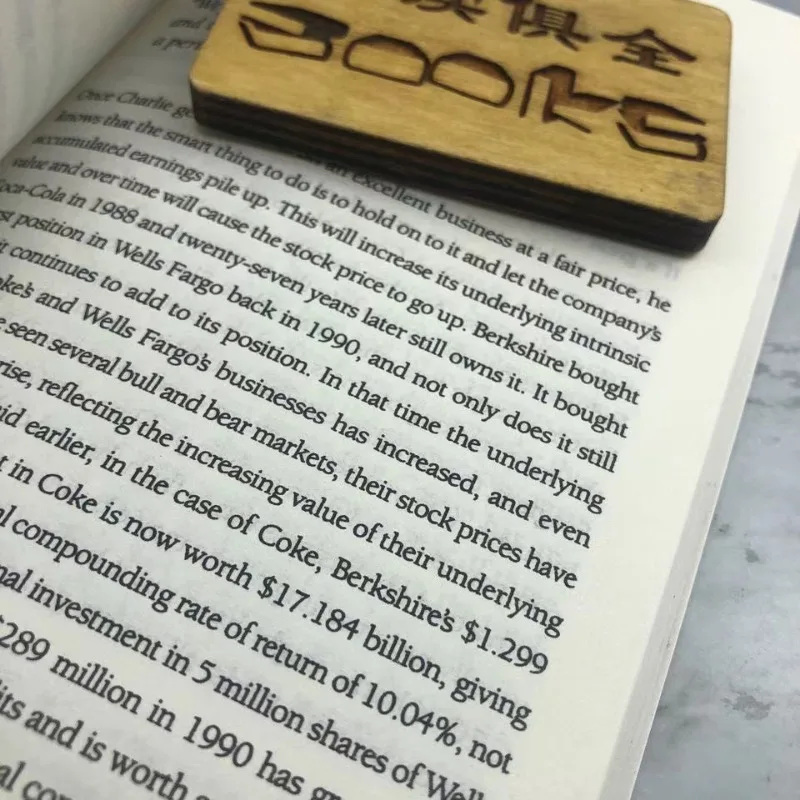 俱全
BOOKS
and
Once Charlie an excellent business at a fair price, he
knows that the smart thing to do is to hold on to it and let the company's
accumulated earnings pile up. This will increase its underlying intrinsic
value and over time will cause the stock price to go up. Berkshire bought
Coca-Cola in 1988 and twenty-seven years later still owns it. It bought
position in Wells Fargo back in 1990, and not only does it still
it continues to add to its position. In that time the underlying
and Wells Fargo's businesses has increased, and even
seen several bull and bear markets, their stock prices have
rise, reflecting the increasing value of their underlying
earlier, in the case of Coke, Berkshire's $1.299
in Coke is now worth $17.184 billion, giving
compounding rate of return of 10.04%, not
investment in 5 million shares of Well
$289 million in 1990 has
and is worth